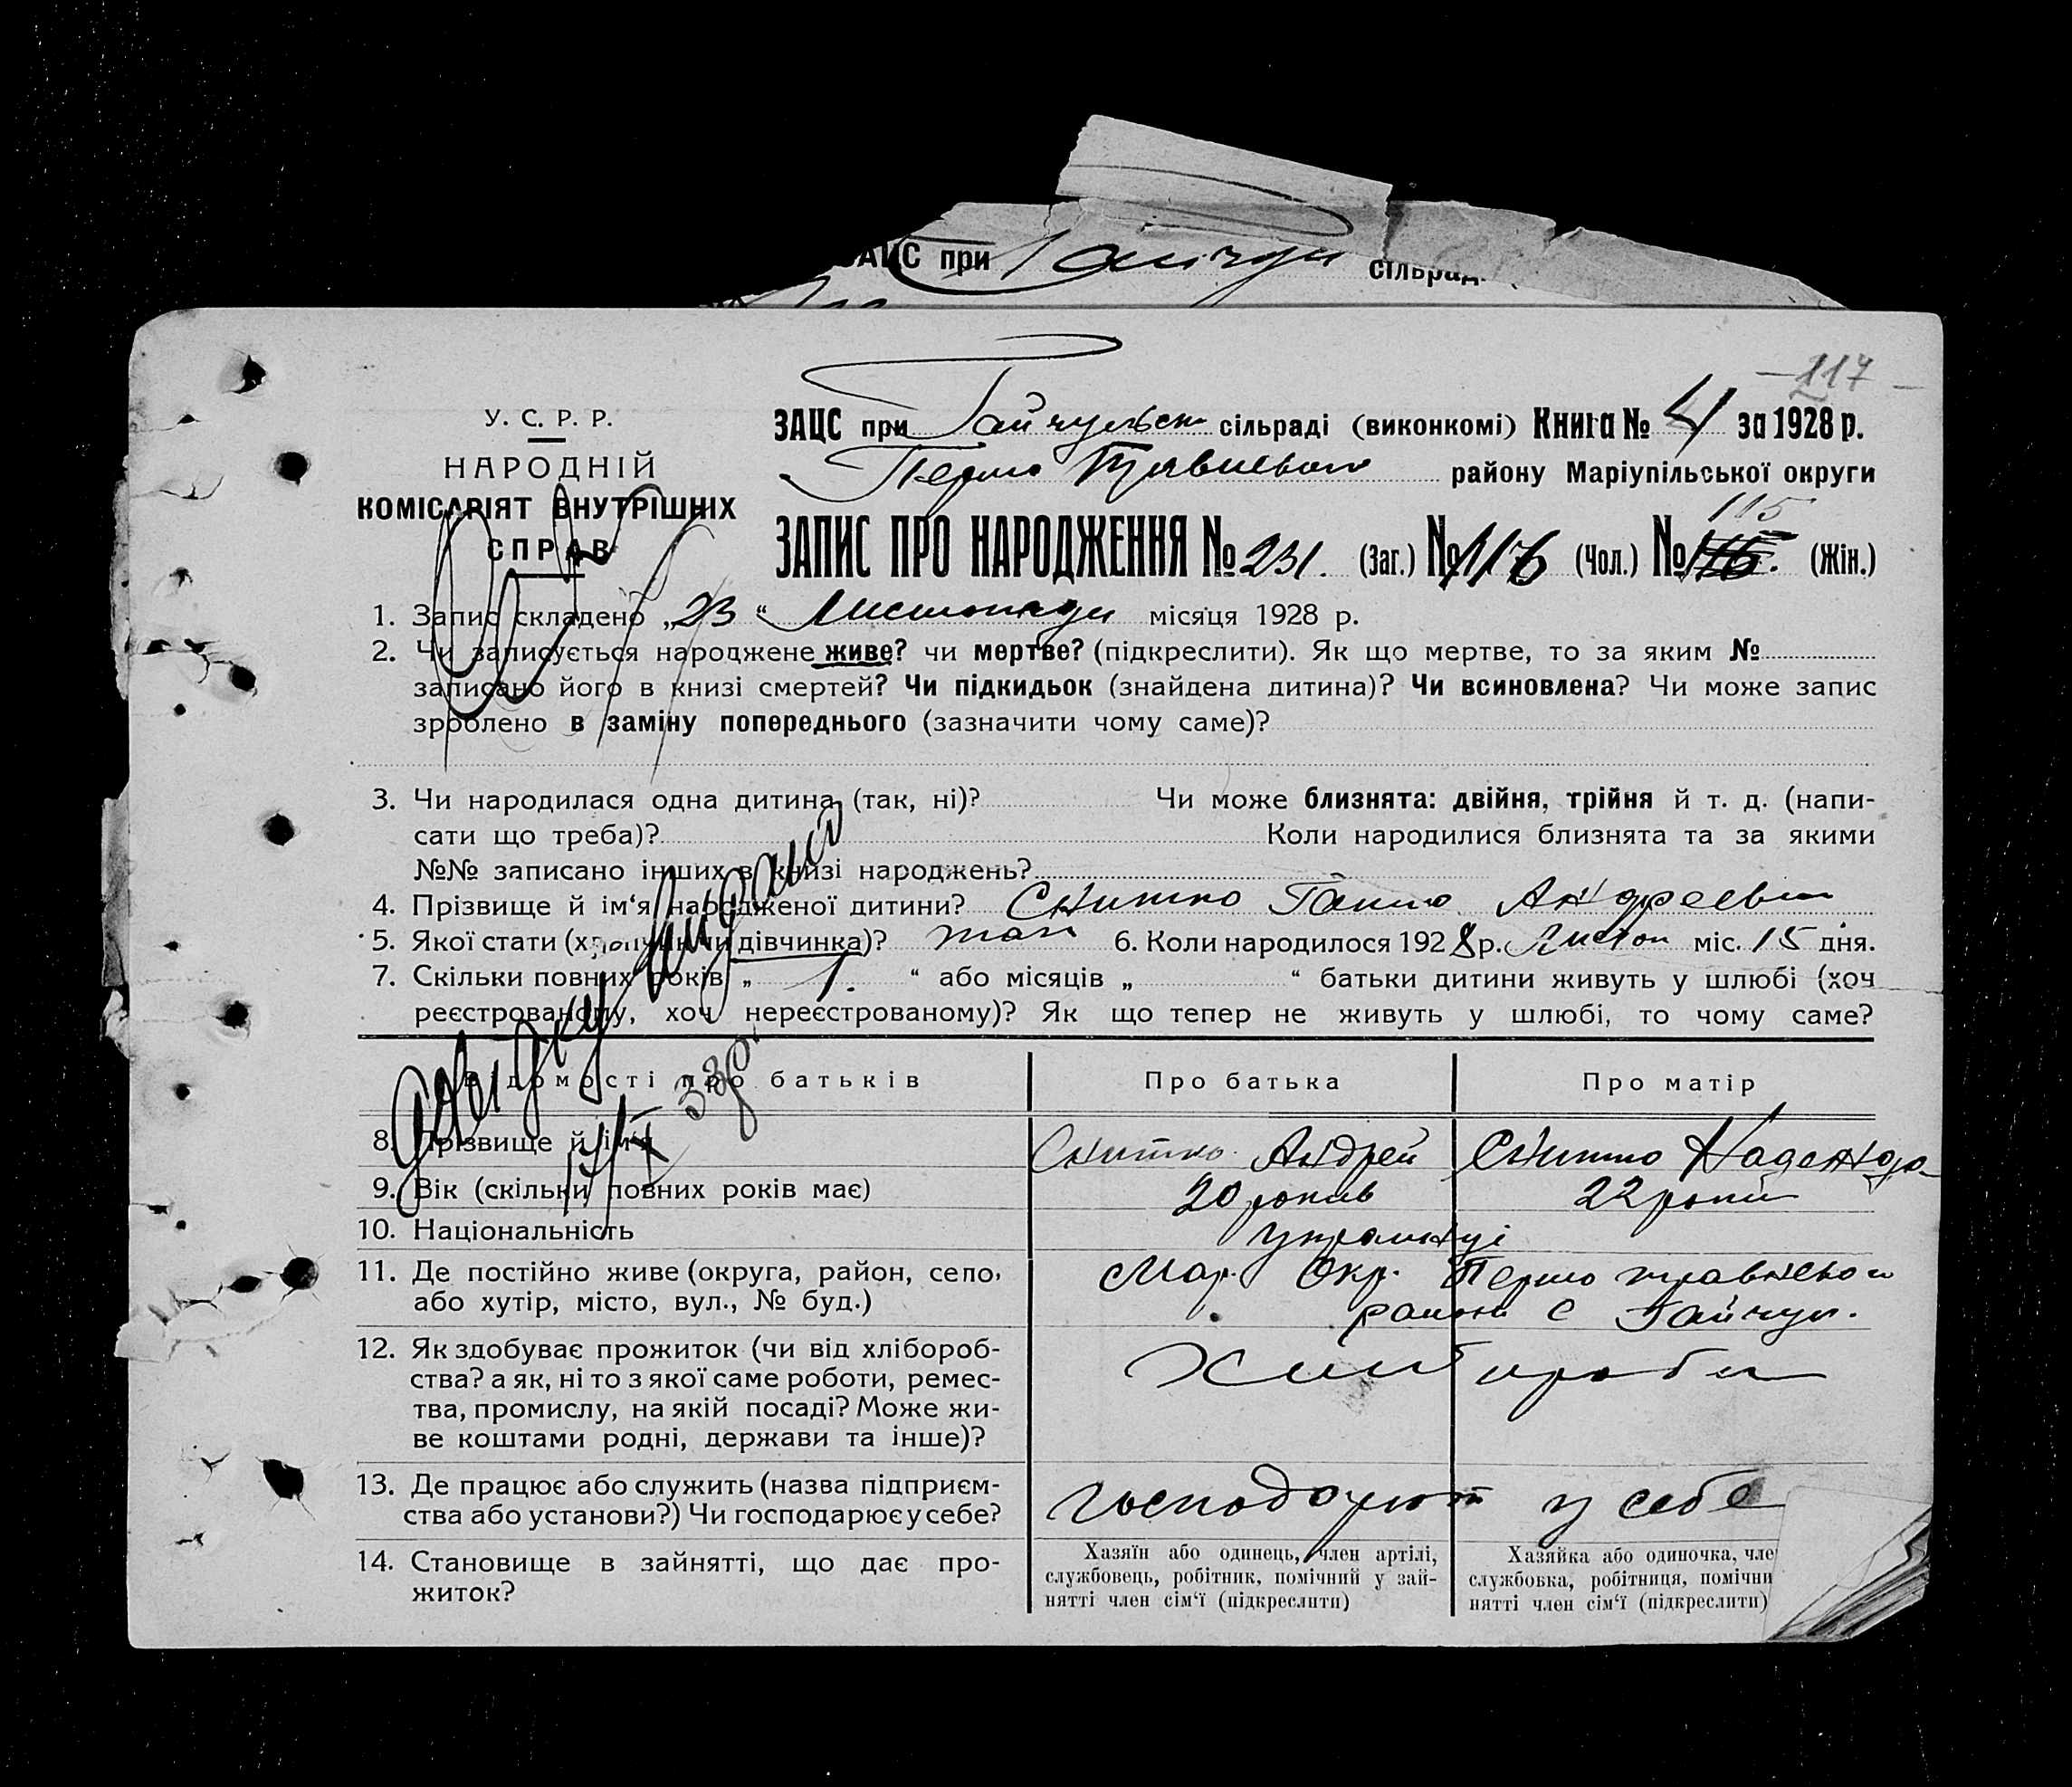 ЗАЦС при Гайчул сільрад
117
У. С. Р. Р.
НАРОДНІЙ
КОМІСАРІЯТ ВНУТРІШНІХ
СПРАВ
ЗАЦС при Гайчульск сільраді (виконкомі) Книга № 4 за 1928 р.
Першо Травневого району Маріупільської округи
115
ЗАПИС ПРО НАРОДЖЕННЯ № 231. (Заг.) № 116 (Чол.) № 116. (Жін.)
1. Запис складено „23“ Листопада місяця 1928 р.
2. Чи записується народжене живе? чи мертве? (підкреслити). Як що мертве, то за яким №
записано його в книзі смертей? Чи підкидьок (знайдена дитина)? Чи всиновлена? Чи може запис
зроблено в заміну попереднього (зазначити чому саме)?
3. Чи народилася одна дитина (так, ні)? Чи може близнята: двійня, трійня й т. д. (напи-
сати що треба)? Коли народилися близнята та за якими
№№ записано інших в книзі народжень?
4. Прізвище й ім‘я народженої дитини? Снитко Ганна Андреевн
5. Якої стати (хлопчик чи дівчинка)? 6. Коли народилося 1928 р. Листоп міс. 15 дня.
7. Скільки повних років „ 1. “ або місяців „ “ батьки дитини живуть у шлюбі (хоч
реєстрованому, хоч нереєстрованому)? Як що тепер не живуть у шлюбі, то чому саме?
довідку видано
Відомості про батьків Про батька Про матір
8. Прізвище й ім‘я Снитко Андрей Снитко Надежда
9. Вік (скільки повних років має) 20 років 22 роки
10. Національність українці
11. Де постійно живе (округа, район, село, Мар. Окр. Першо травневого
або хутір, місто, вул., № буд.) району с Гайчул.
12. Як здобуває прожиток (чи від хлібороб- Хлібороби
ства? а як, ні то з якої саме роботи, ремес-
тва, промислу, на якій посаді? Може жи-
ве коштами родні, держави та інше)?
13. Де працює або служить (назва підприєм- господарюют у себе
ства або установи?) Чи господарює у себе?
14. Становище в зайнятті, що дає про-
житок?
Хазяїн або одинець, член артілі,
службовець, робітник, помічний у зай-
нятті член сім‘ї (підкреслити)
Хазяйка або одиночка, чле
службовка, робітниця, помічни
нятті член сім‘ї (підкреслити)